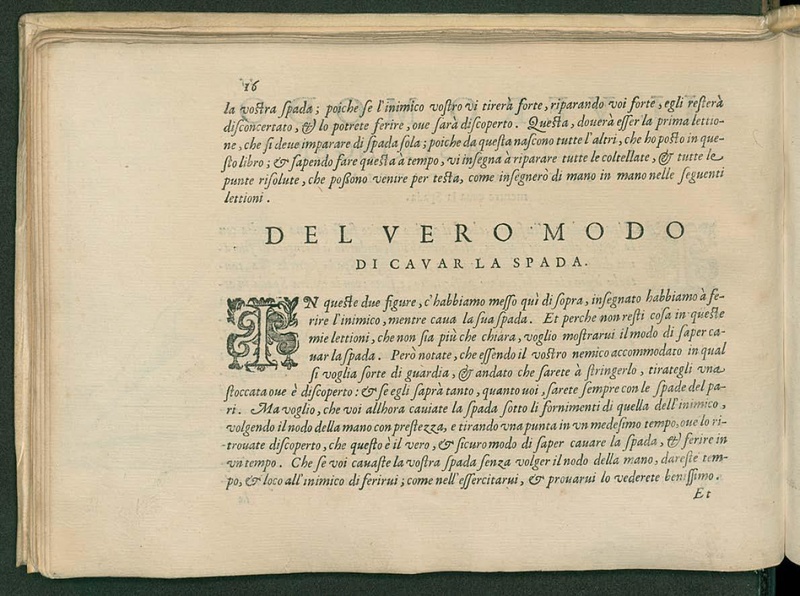 16
la vostra ſpada; poiche ſe l'inimico vostro vi tirerà forte, riparando voi forte, egli resterà
diſconcertato, & lo potrete ferire, oue ſarà diſcoperto. Questa, douerà eſſer la prima lettio-
ne, che ſi deue imparare di ſpada ſola; poiche da questa naſcono tutte l'altri, che ho posto in que-
ſto libro; & ſapendo fare questa à tempo, vi inſegna à riparare tutte le coltellate, & tutte le
punte riſolute, che poſſono venire per teſta, come inſegnerò di mano in mano nelle ſeguenti
lettioni.
DEL VERO MODO
DI CAVAR LA SPADA.
IN queste due figure, c'habbiamo meſſo quì di ſopra, inſegnato habbiamo à fe-
rire l'inimico, mentre caua la ſua ſpada. Et perche non reſti coſa in queste
mie lettioni, che non ſia più che chiara, voglio moſtrarui il modo di ſaper ca-
uar la ſpada. Però notate, che eſſendo il vostro nemico accommodato in qual
ſi voglia ſorte di guardia, & andato che ſarete à ſtringerlo, tirategli vna
ſtoccata oue è diſcoperto: & ſe egli ſaprà tanto, quanto uoi, ſarete ſempre con le ſpade del pa-
ri. Ma voglio, che voi allhora cauiate la ſpada ſotto li fornimenti di quella dell'inimico,
volgendo il nodo della mano con prestezza, e tirando vna punta in vn medeſimo tempo, oue lo ri-
trouate diſcoperto, che questo è il vero, & ſicuro modo di ſaper cauare la ſpada, & ferire in
vn tempo. Che ſe voi cauaſte la vostra ſpada ſenza volger il nodo della mano, dareſte tem-
po, & loco all'inimico di ferirui; come nell'eſſercitarui, & prouarui lo vederete beniſſimo.
Et